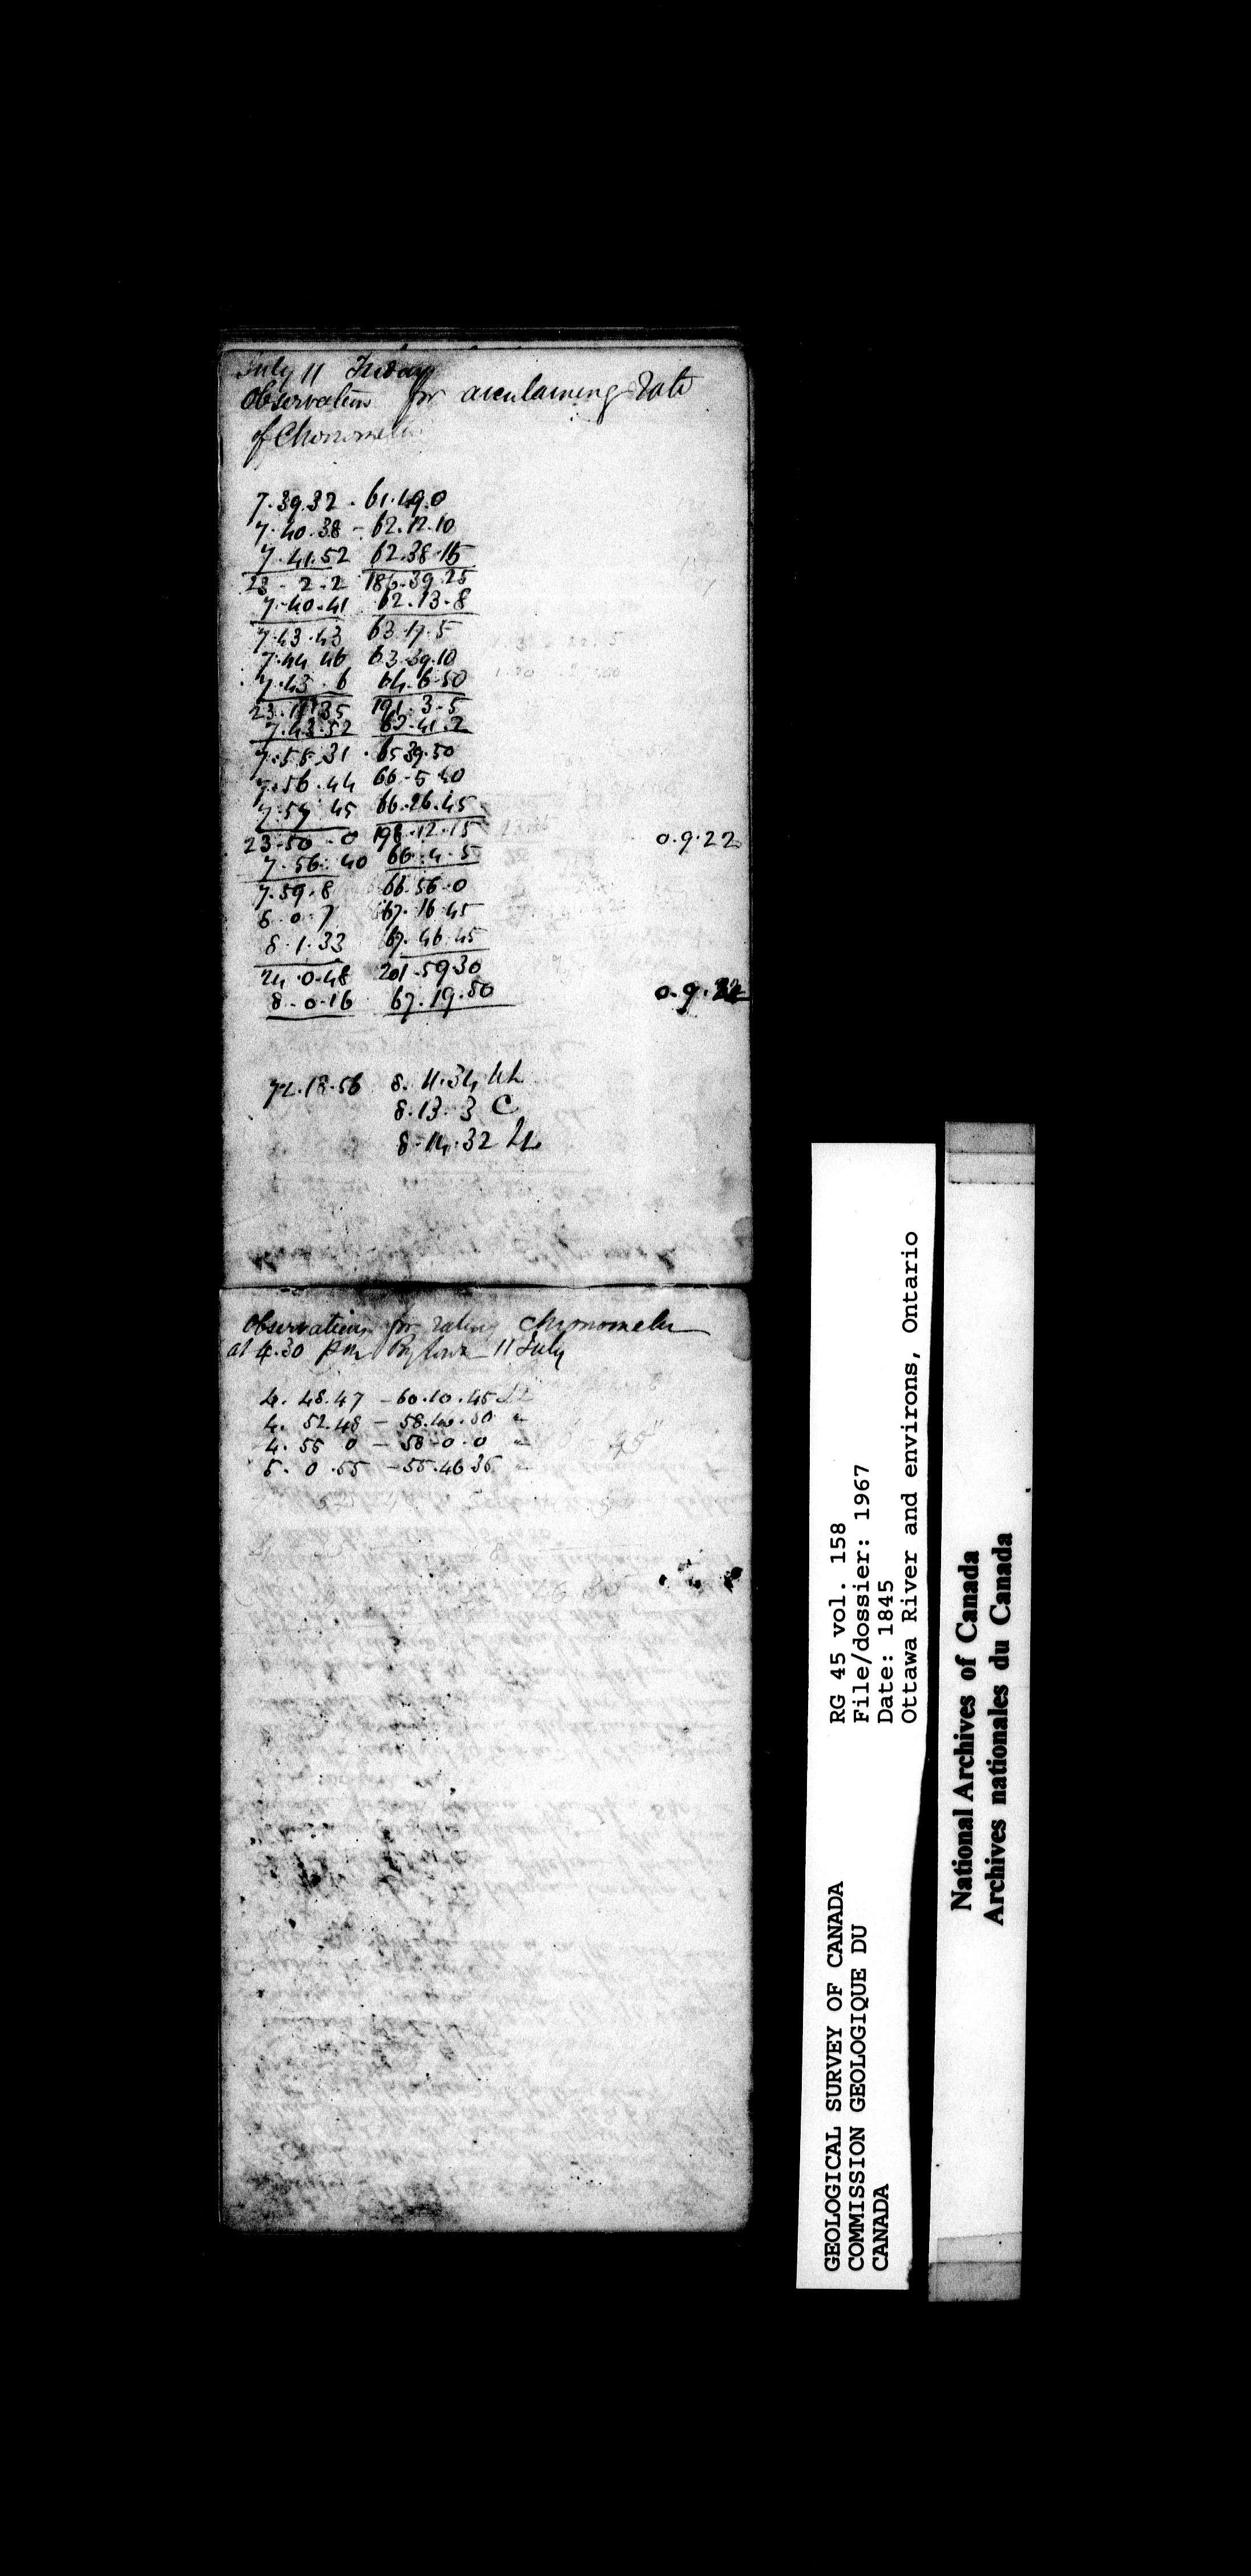 July 11 Friday
Observations for ascertaining Rate
of Chronometer
7.39.32 - 61.49.0
7.40.38 - 62.12.10
7.41.52 62.38.15
23-2-2 186.39.25
7.40.41 62.13.8
7.43.43 63.17.5
7.44 46 63.39.10
7.43.6 64.6.50
23.11.35 191.3-5
7.43.52 63.41.2
7.55.31 65 39.50
7.56.44 66-5 40
7.57 45 66.26.45
23-50-0 198.12.15 0.9.22
7.56.40 66.4.5
7.59.8 66.56.0
8.0.7 67.16.45
8.1.33 67.46.45
24.0.48 201.59.30
8-0.16 67.19.50 0.9.
72.18.56 8.11.34 UL
8.13.3 C
8.14.32 LL
Observations for rating Chronometer
at 4.30 pm Bytown 11 July
4. 48.47 - 60.10.45 LL
4. 52.48 - 58.40.50 "
4. 55 0 - 58-0.0 "
5. 0.55 - 55.46 35 "
GEOLOGICAL SURVEY OF CANADA
COMMISSION GEOLOGIQUE DU
CANADA
RG 45 vol. 158
File/dossier: 1967
Date: 1845
Ottawa River and environs, Ontario
National Archives of Canada
Archives nationales du Canada